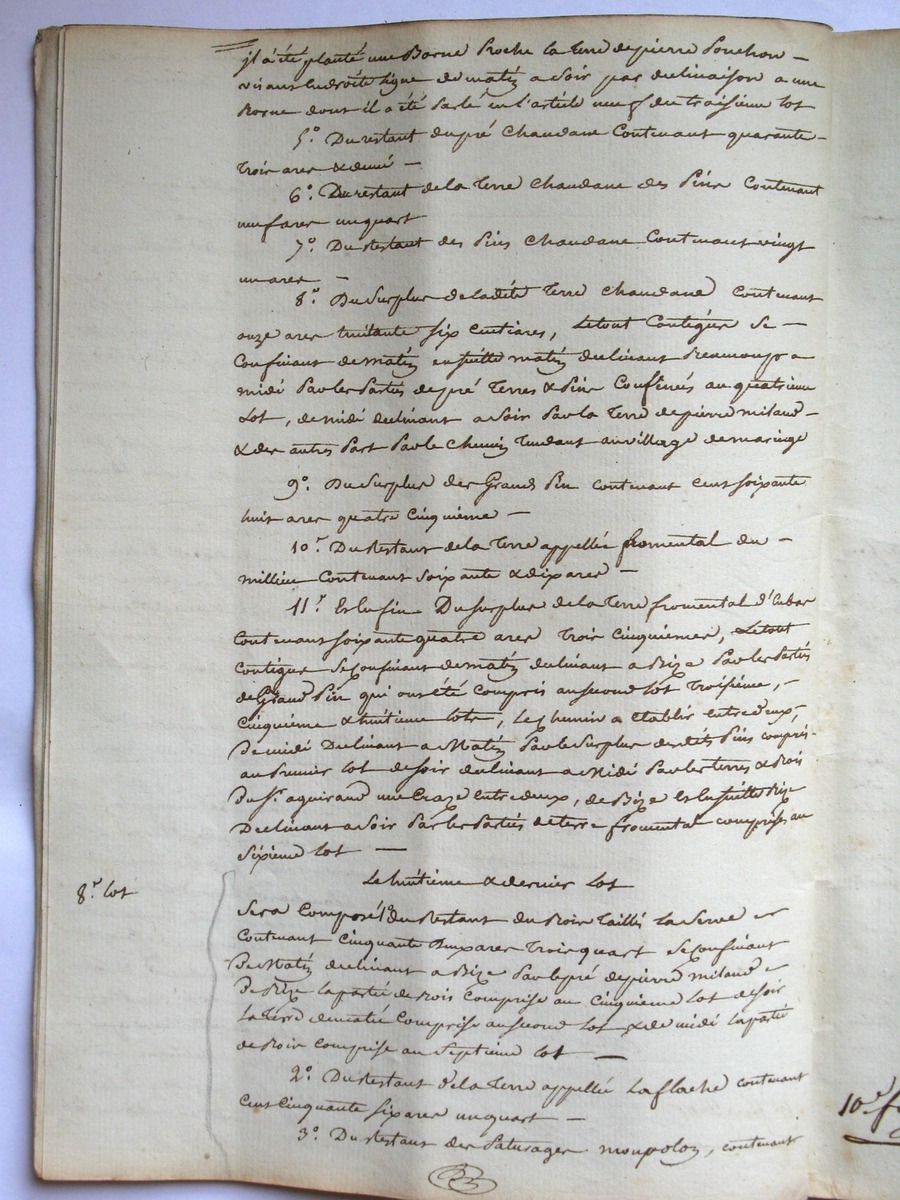 il a été planté une Borne Proche la terre de pierre Ponchon –
visant en droite ligne de matin a soir par declinaison a une
Borne dont il a été Parlé en l'article neuf du troisieme lot
5°. Du restant du pré Chaudane Contenant quarante
trois ares & demi –
6°. Du restant de la terre Chaudane des Pins Contenant
neuf ares un quart
7°. Du Restant des Pins Chaudane Contenant vingt
un ares –
8°. Du Surplus de la dite Terre Chaudane contenant
onze ares trente six centiares, Le tout Contigus Se –
Confinant de matin ensuitte matin declinant Beaucoup a
midi Par les Parties de pré Terres & Pins Confinés au quatrieme
Lot, de midi declinant a soir Par la Terre de pierre miland –
& des autres Part Par le Chemin Tendant au village de maringe
9°. Du Surplus des Grands Pin contenant cent soixante
huit ares quatre Cinquieme –
10°. Du Restant de la Terre appellée fromental du –
millieu Contenant Soixante & dix ares –
11°. Et Enfin Du Surplus de la Terre fromental d'
Contenant soixante quatre ares Trois Cinquiemes, Le tout
contigus se confinant de matin declinant a Bize Par les Parties
de Grand Pin qui ont été Compris au second lot Troisieme, –
Cinquieme & huitieme lots, Le Chemin a Etablir entre deux,
De midi Declinant a Matin Par le Surplus desdits Pins compris
au Premier lot de soir declinant a Midi Par les terres & Bois
Du Sr. aguiraud une Craze entre deux, de Bize Et Ensuitte Bize
Declinant a soir Par les Parties de terre fromental comprises au
Sixieme lot –
Le huitieme & dernier lot
8e. lot
Sera Composé 1° du Restant du Bois Taillis la Serve
Contenant Cinquante Deux ares Trois quart Se Confinant
De Matin declinant a Bize Par le pré de pierre miland
De Bize la partie de Bois Comprise au Cinquieme lot de soir
La Terre Comprise au second lot & de midi la partie
de Bois Comprise au Septieme lot –
2°. Du Restant de la Terre appellée La flache contenant
Cent Cinquante six ares un quart –
3°. Du Restant des Paturages monpolon, contenant
10e